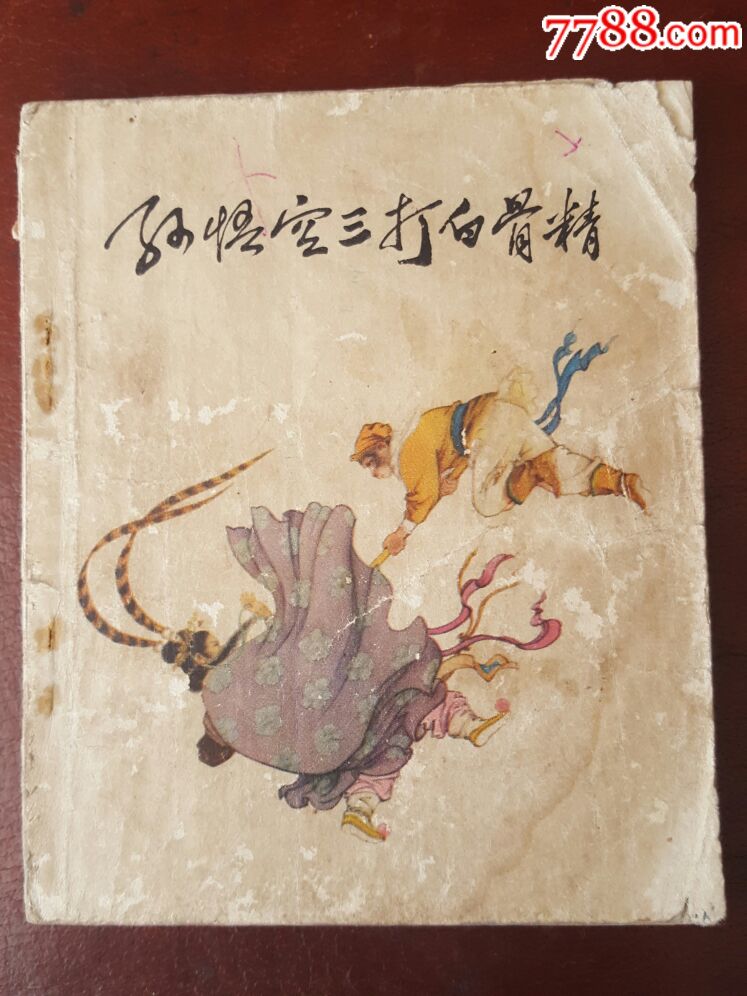 7788.com
孙悟空三打白骨精